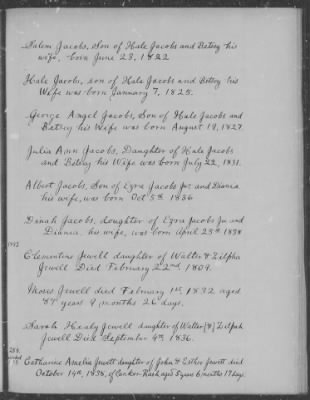 Salem Jacobs, Son of Hale Jacobs and Betsey his
wife, born June 23, 1822
Hale Jacobs, son of Hale Jacobs and Betsey his
Wife was born January 7, 1825.
George Angel Jacobs, Son of Hale Jacobs and
Betsey his Wife was born August 19, 1827.
Julia Ann Jacobs, Daughter of Hale Jacobs
and Betsey his Wife was born July 22, 1831.
Albert Jacobs, Son of Ezra Jacobs Jr. and Diania
his wife, was born Oct 5th 1836
Dinah Jacobs, daughter of Ezra Jacobs Jr. and
Diania, his wife, was born April 23th 1838
Clementine Jewell daughter of Walter & Zilpha
Jewell Died February 22nd 1809.
Moses Jewell died February 1st 1832 aged
87 years 9 months 26 days.
Sarah Healy Jewell daughter of Walter [&] Zilpah
Jewell Died September 4th 1836.
Catharine Amelia Jewett daughter of John & Esther Jewett died
October 14th, 1838, of Canker Rash, aged 5 years 6 months 17 days.